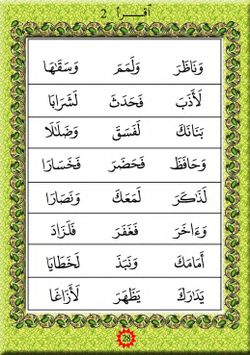 أقرأ 2
وَنَاظَرَ وَلَمَمَ وَسَقَىٰهَا
لَأَذَبَ فَحَدَثَ لَشَرَابَا
بَنَانَكَ لَفَسَقَ وَضَلَـٰلَا
وَحَافَظَ فَحَضَرَ فَخَسَارَا
لَذَكَرَ لَمَعَكَ وَنَصَارَا
وَءَاخَرَ فَغَفَرَ فَلَزَادَ
أَمَامَكَ وَنَبَذَ لَخَطَايَا
يَدَارَكَ يَظْهَرَ لَأَزَاغَا
28